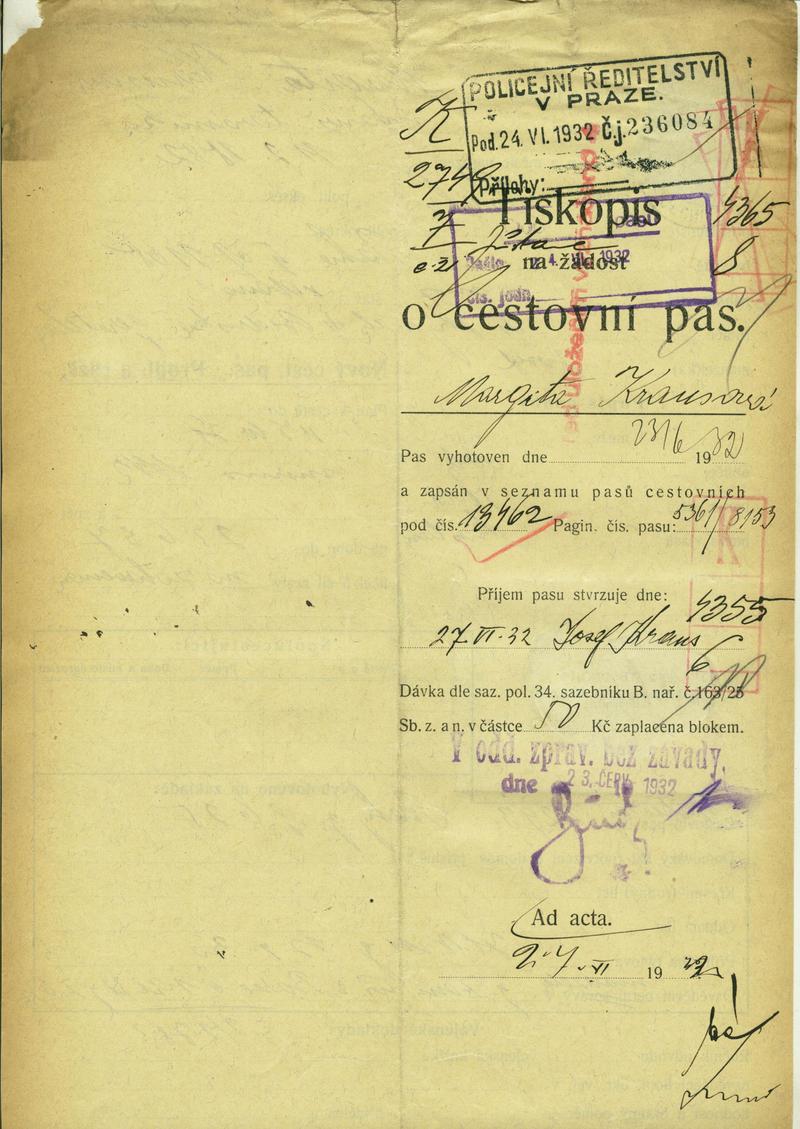 POLICEJNÍ ŘEDITELSTVÍ
V PRAZE.
Pod. 24. VI. 1932 Č.j. 236084
Přílohy:
K
Tiskopis
4365
8
na žádost
24. 1932
čís. jedn.
o cestovní pas.
Margita Krausová
Pas vyhotoven dne 23/6 1932
a zapsán v seznamu pasů cestovních
pod čís. 13462 Pagin. čís. pasu: 5361/8153
Příjem pasu stvrzuje dne:
4355
6
27.VI.32 Josef Kraus
Dávka dle saz. pol. 34. sazebníku B. nař. č. 163/25
Sb. z. a n. v částce 50 Kč zaplacena blokem.
V odd. zprav. bez závady.
dne 23. ČERV. 1932
Ad acta.
27.VI 1932